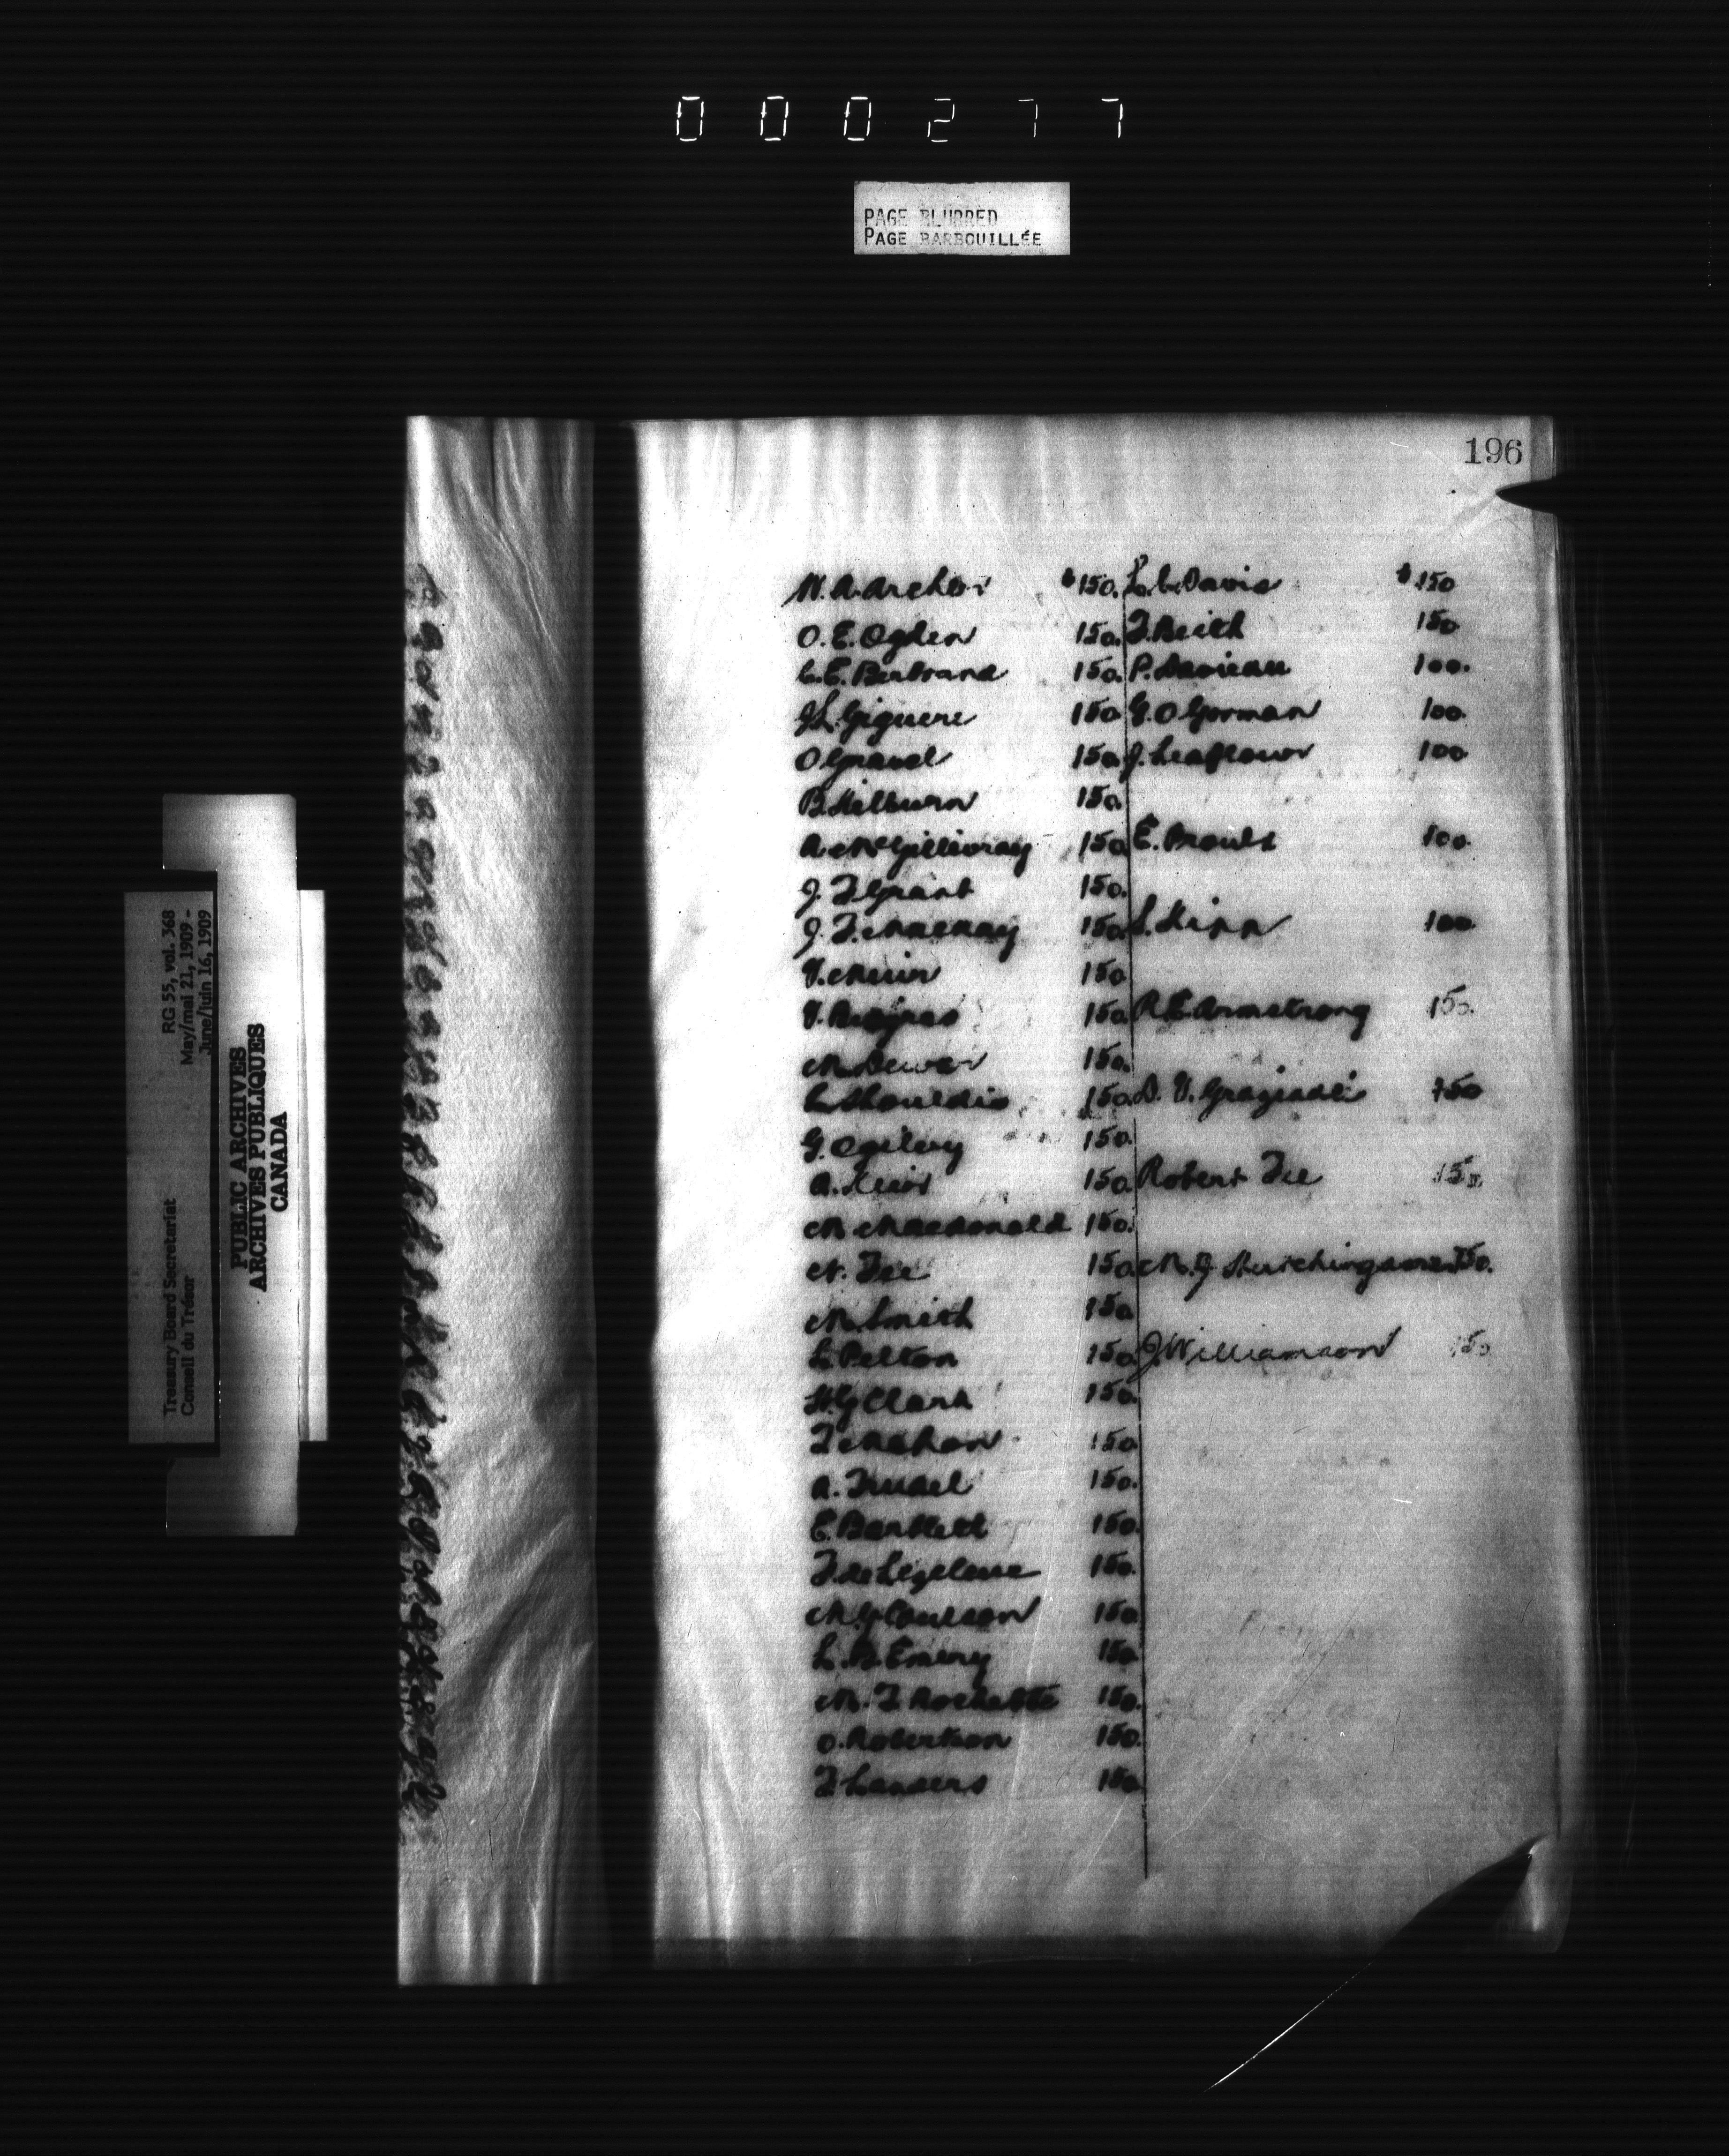 000277
PAGE BLURRED
PAGE BARBOUILLÉE
196
RG 55, vol. 368
May/mai 21, 1909 -
June/juin 16, 1909
Treasury Board Secretariat
Conseil du Trésor
PUBLIC ARCHIVES
ARCHIVES PUBLIQUES
CANADA
W. A. Archer $150. L. C. Davis $150
O. E. Ogden 150. F. Keith 150
C. E. Bertrand 150. P. 100.
J. L. Giguere 150 G. O Gorman 100
O Gravel 150 J. Leaflower 100
B. Kilburn 150
A. McGillivray 150 E. Proulx 100
J. F. Grant 150.
J. F. Mackay 150 S. 100
V. Muir 150
150 R. E. Armstrong 150.
M. Dewar 150.
C. Shouldis 150. 150
G. Ogilvy 150.
A. 150. Robert Fee 150
M. Macdonald 150.
N. Fee 150 M. G. 150.
M. Smith 150
L. Pelton 150 J. Williamson 150
H. G Clark 150.
F. Mahon 150
A. Trudel 150.
E. Bartlett 150.
150.
M. G. Coulson 150
L. B. Emery 150
M. F. Rochette 150.
O. Robertson 150.
F. Landers 150